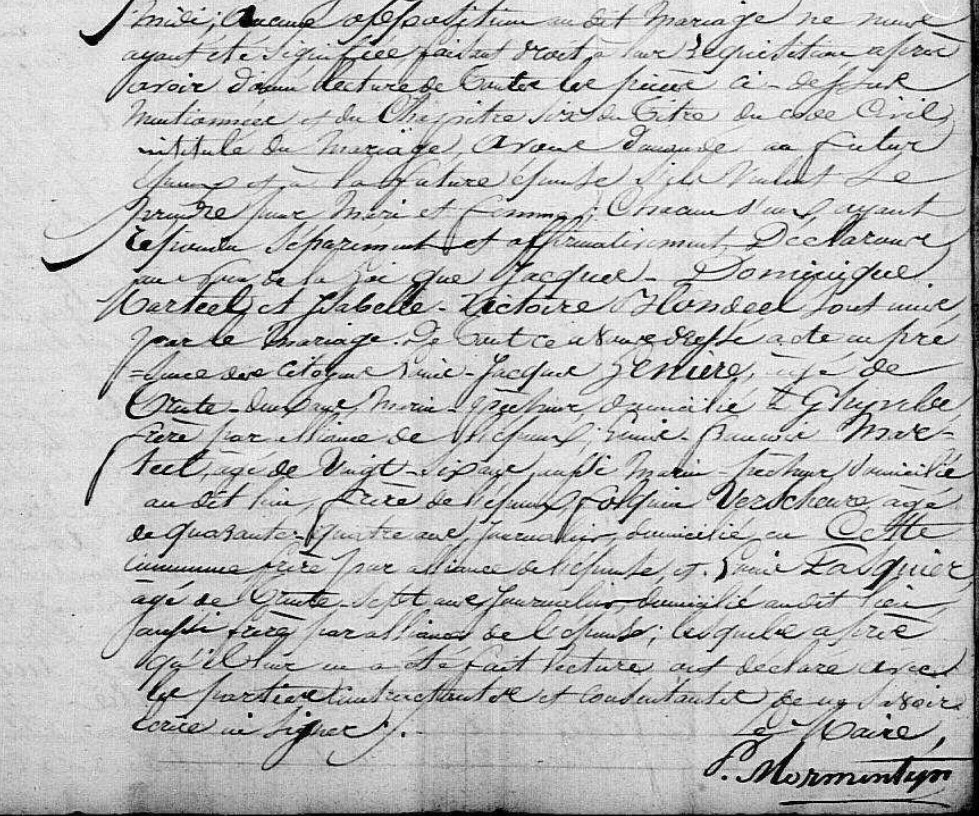 midi; Aucune opposition au dit Mariage ne nous
ayant été signifiée faisant droit à leur requisition après
avoir donné lecture de toutes les pièces ci-dessus
mentionnées et du Chapitre six du titre du code Civil
intitulé du Mariage, avons demandé au futur
époux et à la future épouse s'ils veulent se
prendre pour Mari et femme; Chacun d'eux ayant
répondu séparément et affirmativement, Déclarons
au Nom de la Loi que Jacques-Dominique
Marteel et Isabelle-Victoire Blondeel sont unis
par le Mariage. De tout ce avons dressé acte en pré
=sence des Citoyens Louis-Jacques Geniere, âgé de
trente-deux ans, Marin-pêcheur domicilié à Ghyvelde
frère par alliance de l'époux; Louis-François Mar-
teel, âgé de Vingt-six ans, aussi Marin-pêcheur domicilié
au dit lieu, frère de l'époux, Folquin Verscheure, âgé
de quarante-quatre ans, Journalier, domicilié en Cette
commune frère par alliance de l'épouse, et Louis Fasquier
âgé de trente-sept ans Journalier, domicilié au dit lieu
aussi frère par alliance de l'épouse; lesquels après
qu'il leur en a été fait lecture ont declaré avec
les parties contractantes et consentantes de ne savoir
écrire ni signer).
Le Maire,
P. Mormentyn